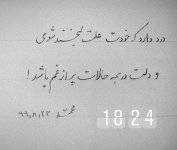 درد دارد که خودت علت لبخند شوی
و دلت در همه حالات پر از غم باشد!
محمد ۹۹،۸،۲۳
18 24